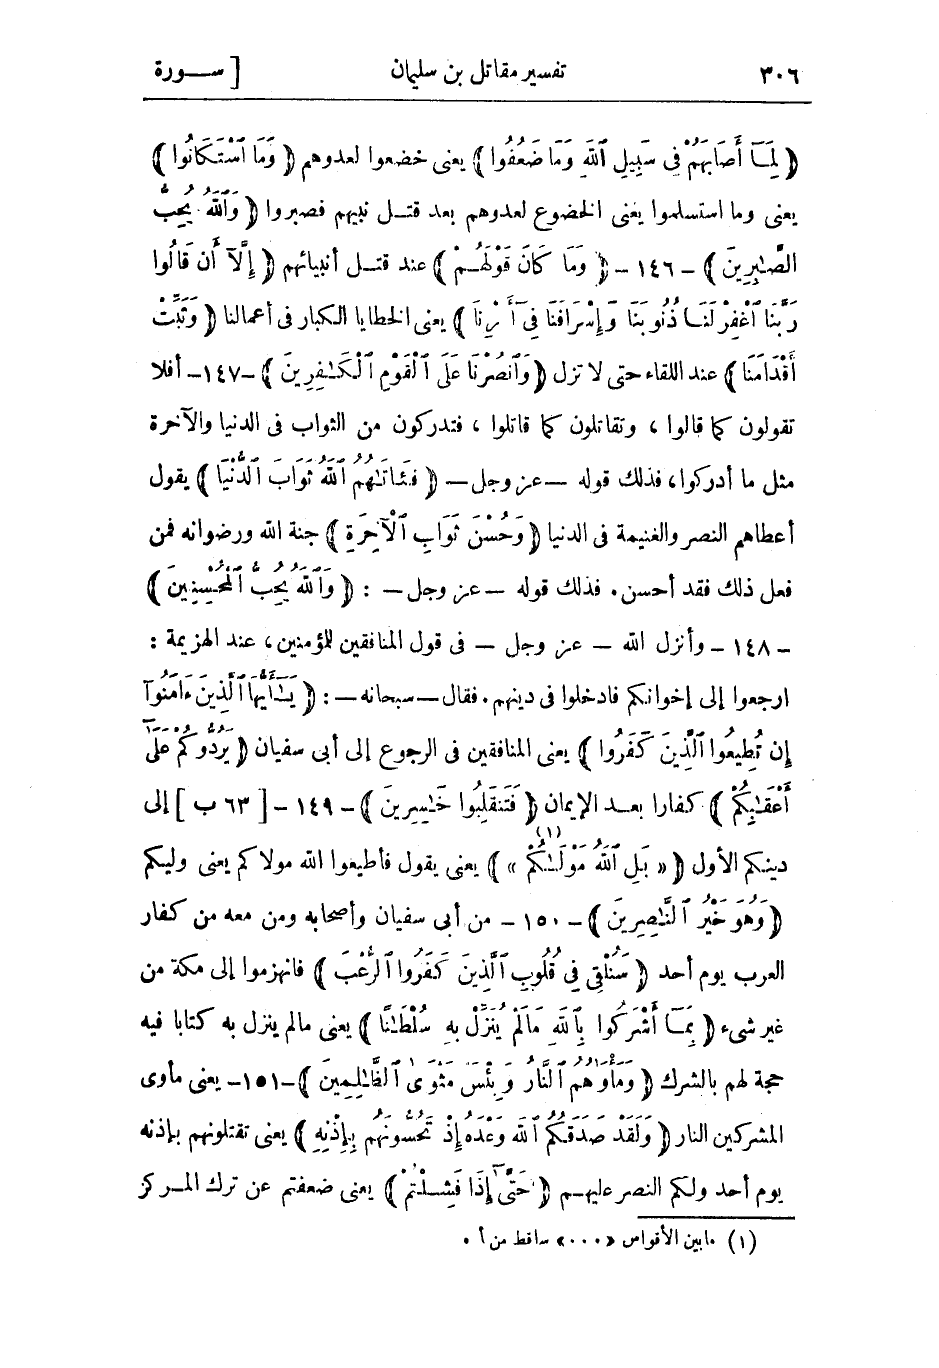 ٣٠٦ تفسير مقاتل بن سليمان [ ســورة
﴿ لِمَآ أَصَابَهُمْ فِى سَبِيلِ ٱللَّهِ وَمَا ضَعُفُوا ﴾ يعنى خضعوا لعدوهم ﴿ وَمَا ٱسْتَكَانُوا ﴾
يعنى وما استسلموا يعنى الخضوع لعدوهم بعد قتــل نبيهم فصبروا ﴿ وَٱللَّهُ يُحِبُّ
ٱلصَّـٰبِرِينَ ﴾ - ١٤٦ - ﴿ وَمَا كَانَ قَوْلَهُــمْ ﴾ عند قتــل أنبيائهم ﴿ إِلَّآ أَن قَالُوا
رَبَّنَا ٱغْفِرْ لَنَـا ذُنُوبَنَا وَإِسْرَافَنَا فِىٓ أَمْرِنَا ﴾ يعنى الخطايا الكبار فى أعمالنا ﴿ وَثَبِّتْ
أَقْدَامَنَا ﴾ عند اللقاء حتى لا تزل ﴿ وَٱنصُرْنَا عَلَى ٱلْقَوْمِ ٱلْكَـٰفِرِينَ ﴾ -١٤٧- أفلا
تقولون كما قالوا ، وتقاتلون كما قاتلوا ، فتدركون من الثواب فى الدنيا والآخرة
مثل ما أدركوا، فذلك قوله —عز وجل— ﴿ فَـَٔاتَـٰهُمُ ٱللَّهُ ثَوَابَ ٱلدُّنْيَا ﴾ يقول
أعطاهم النصر والغنيمة فى الدنيا ﴿ وَحُسْنَ ثَوَابِ ٱلْأَخِرَةِ ﴾ جنة الله ورضوانه فمن
فعل ذلك فقد أحسن. فذلك قوله —عز وجل— : ﴿ وَٱللَّهُ يُحِبُّ ٱلْمُحْسِنِينَ ﴾
- ١٤٨ - وأنزل الله — عز وجل — فى قول المنافقين للمؤمنين، عند الهزيمة :
ارجعوا إلى إخوانكم فادخلوا فى دينهم. فقال—سبحانه—: ﴿ يَـٰٓأَيُّهَا ٱلَّذِينَ ءَامَنُوٓا
إِن تُطِيعُوا ٱلَّذِينَ كَفَرُوا ﴾ يعنى المنافقين فى الرجوع إلى أبى سفيان ﴿ يَرُدُّوكُمْ عَلَىٰٓ
أَعْقَـٰبِكُمْ ﴾ كفارا بعــد الإيمان ﴿ فَتَنقَلِبُوا خَـٰسِرِينَ ﴾ - ١٤٩ - [ ٦٣ ب ] إلى
دينكم الأول ﴿ « بَلِ ٱللَّهُ مَوْلَـٰكُمْ » (١) ﴾ يعنى يقول فأطيعوا الله مولاكم يعنى وليكم
﴿ وَهُوَ خَيْرُ ٱلنَّـٰصِرِينَ ﴾ - ١٥٠ - من أبى سفيان وأصحابه ومن معه من كفار
العرب يوم أحد ﴿ سَنُلْقِى فِى قُلُوبِ ٱلَّذِينَ كَفَرُوا ٱلرُّعْبَ ﴾ فانهزموا إلى مكة من
غير شىء ﴿ بِمَـآ أَشْرَكُوا بِٱللَّهِ مَالَمْ يُنَزِّلْ بِهِ سُلْطَـٰنًا ﴾ يعنى مالم ينزل به كتابا فيه
حجة لهم بالشرك ﴿ وَمَأْوَىٰهُمُ ٱلنَّارُ وَبِئْسَ مَثْوَى ٱلظَّـٰلِمِينَ ﴾ -١٥١- يعنى مأوى
المشركين النار ﴿ وَلَقَدْ صَدَقَكُمُ ٱللَّهُ وَعْدَهُ إِذْ تَحُسُّونَهُم بِإِذْنِهِ ﴾ يعنى تقتلونهم بإذنه
يوم أحد ولكم النصر عليهـم ﴿ حَتَّىٰٓ إِذَا فَشِـلْتُمْ ﴾ يعنى ضعفتم عن ترك المـركز
(١) مابين الأقواس «...» ساقط من أ .